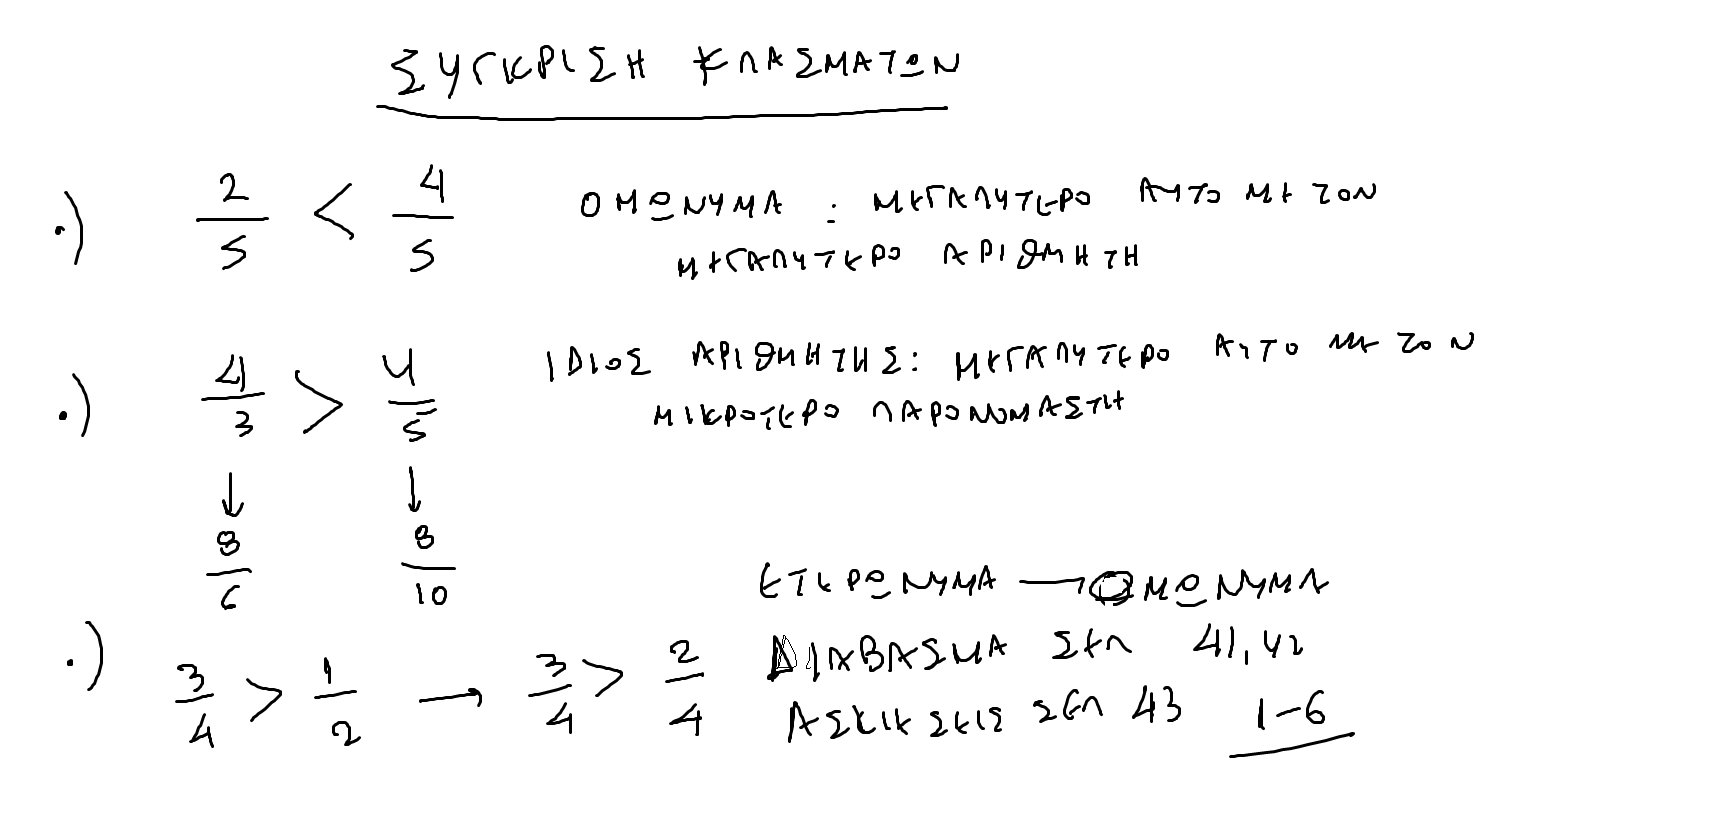 ΣΥΓΚΡΙΣΗ ΚΛΑΣΜΑΤΩΝ
•) 2/5 < 4/5 ΟΜΩΝΥΜΑ : ΜΕΓΑΛΥΤΕΡΟ ΑΥΤΟ ΜΕ ΤΟΝ
ΜΕΓΑΛΥΤΕΡΟ ΑΡΙΘΜΗΤΗ
•) 4/3 > 4/5 ΙΔΙΟΣ ΑΡΙΘΜΗΤΗΣ: ΜΕΓΑΛΥΤΕΡΟ ΑΥΤΟ ΜΕ ΤΟΝ
ΜΙΚΡΟΤΕΡΟ ΠΑΡΟΝΟΜΑΣΤΗ
↓ ↓
8/6 8/10
ΕΤΕΡΩΝΥΜΑ → ΟΜΩΝΥΜΑ
•) 3/4 > 1/2 → 3/4 > 2/4
ΔΙΑΒΑΣΜΑ ΣΕΛ 41,42
ΑΣΚΗΣΕΙΣ ΣΕΛ 43 1-6